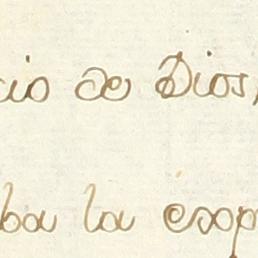 cio de Dios,
ba la esop